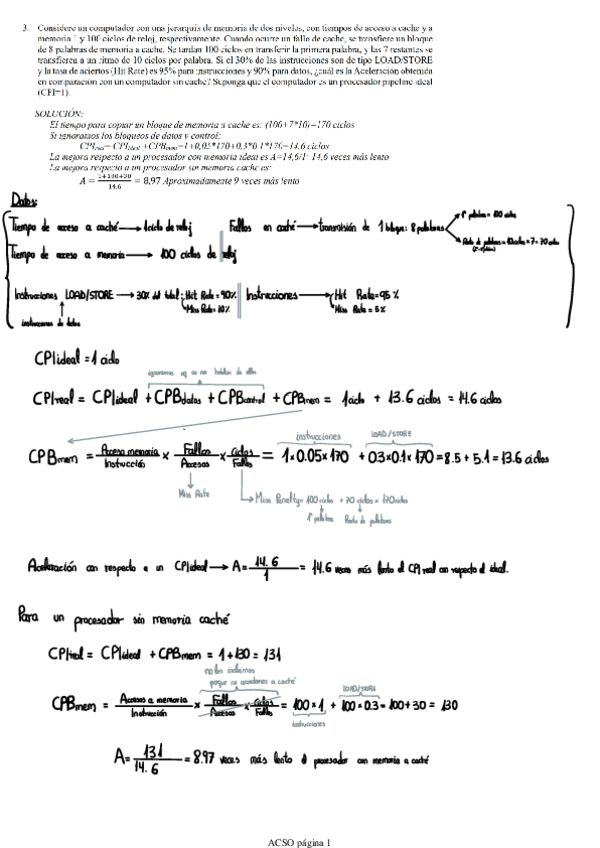 3. Considere un computador con una jerarquía de memoria de dos niveles, con tiempos de acceso a cache y a
memoria 1 y 100 ciclos de reloj, respectivamente. Cuando ocurre un fallo de cache, se transfiere un bloque
de 8 palabras de memoria a cache. Se tardan 100 ciclos en transferir la primera palabra, y las 7 restantes se
transfieren a un ritmo de 10 ciclos por palabra. Si el 30% de las instrucciones son de tipo LOAD/STORE
y la tasa de aciertos (Hit Rate) es 95% para instrucciones y 90% para datos, ¿cuál es la Aceleración obtenida
en comparación con un computador sin cache? Suponga que el computador es un procesador pipeline ideal
(CPI=1).
SOLUCIÓN:
El tiempo para copiar un bloque de memoria a cache es: (100+7*10)=170 ciclos
Si ignoramos los bloqueos de datos y control:
CPIreal= CPIideal +CPBmem=1+0,05*170+0,3*0.1*170=14,6 ciclos
La mejora respecto a un procesador con memoria ideal es A=14,6/1: 14,6 veces más lento
La mejora respecto a un procesador sin memoria cache es:
A = 1+100+30 / 14.6 = 8,97 Aproximadamente 9 veces más lento
Datos:
Tiempo de acceso a caché → 1 ciclo de reloj Fallos en caché → transmisión de 1 bloque: 8 palabras
1ª palabra = 100 ciclos
Tiempo de acceso a memoria → 100 ciclos de reloj
Instrucciones LOAD/STORE → 30% del total: Hit Rate = 90% Instrucciones → Hit Rate = 95 %
Miss Rate = 10% Miss Rate = 5 %
instrucciones de datos
CPIideal = 1 ciclo
CPIreal = CPIideal + CPBdatos + CPBcontrol + CPBmem = 1 ciclo + 13.6 ciclos = 14.6 ciclos
instrucciones LOAD/STORE
CPBmem = Acceso memoria / Instrucción × Fallos / Accesos × Ciclos / Fallos = 1×0.05×170 + 0.3×0.1×170 = 8.5 + 5.1 = 13.6 ciclos
Miss Rate Miss Penalty = 100 ciclos + 70 ciclos = 170 ciclos
1ª palabra Resto de palabras
Aceleración con respecto a un CPIideal → A = 14.6 / 1 = 14.6 veces más lento el CPI real con respecto al ideal.
Para un procesador sin memoria caché
CPIreal = CPIideal + CPBmem = 1 + 130 = 131
no los incluimos
porque no accedemos a caché
LOAD/STORE
CPBmem = Accesos a memoria / Instrucción × Fallos / Accesos × Ciclos / Fallos = 100×1 + 100×0.3 = 100+30 = 130
instrucciones
A = 131 / 14.6 = 8.97 veces más lento el procesador con memoria a caché
ACSO página 1